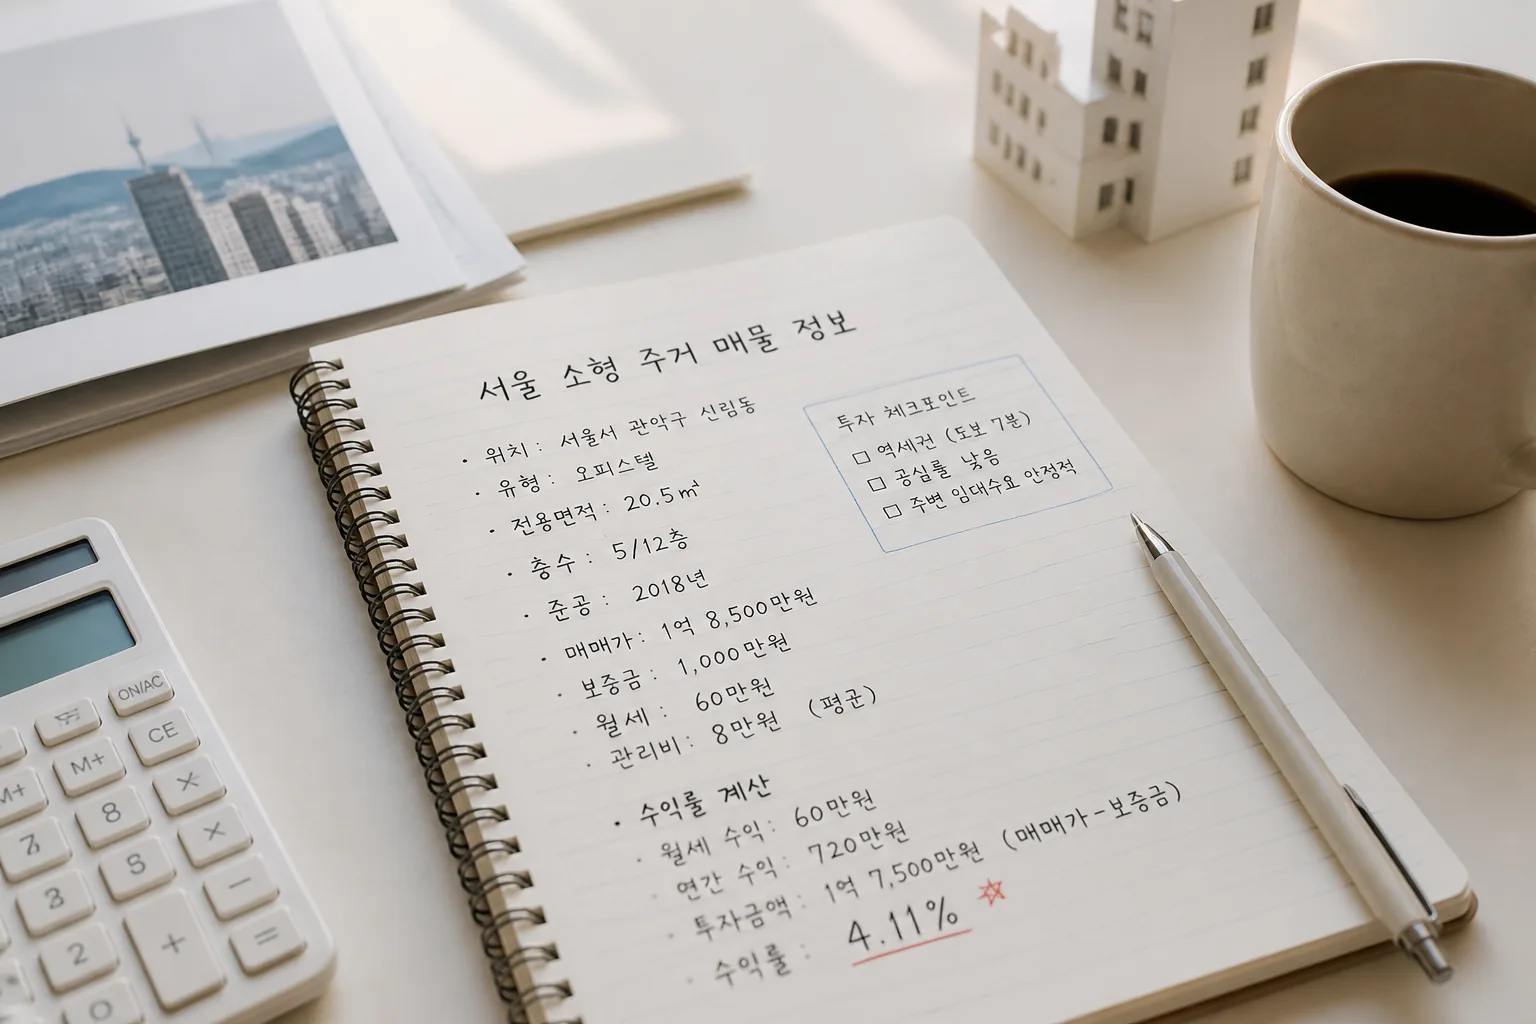 서울 소형 주거 매물 정보
· 위치 : 서울서 관악구 신림동
· 유형 : 오피스텔
· 전용면적 : 20.5㎡
· 층수 : 5/12층
· 준공 : 2018년
· 매매가 : 1억 8,500만원
· 보증금 : 1,000만원
· 월세 : 60만원
· 관리비 : 8만원 (평균)
투자 체크포인트
□ 역세권 (도보 7분)
□ 공실률 낮음
□ 주변 임대수요 안정적
· 수익률 계산
· 월세 수익 : 60만원
· 연간 수익 : 720만원
· 투자금액 : 1억 7,500만원 (매매가-보증금)
· 수익률 : 4.11% ☆
ON/AC
M+ CE
M+ 8 ×
7 5 ×
3 −
2 + =
0